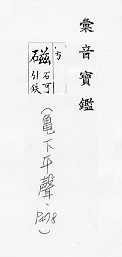 彙音寶鑑
磁
石可
引鉄
(龜下平聲、P478)